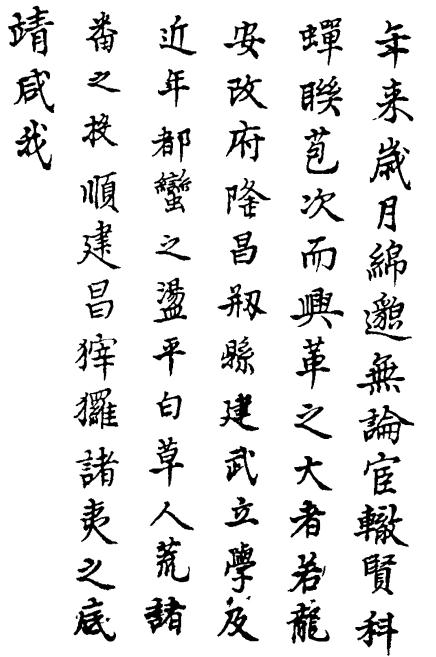 年来歳月綿邈無論宦轍賢科
蟬聯苞次而興革之大者若龍
安改府隆昌剏縣建武立學及
近年都蠻之盪平白草人荒諸
番之投順建昌猓玀諸夷之底
靖咸我